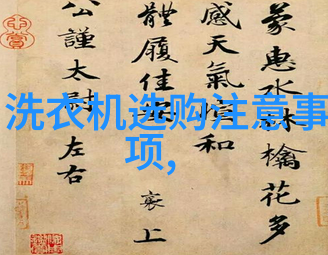 洗衣机选购注意事
项,
蒙惠水林檎花多
感天氣暄和
體履佳安 襄上
公謹太尉左右